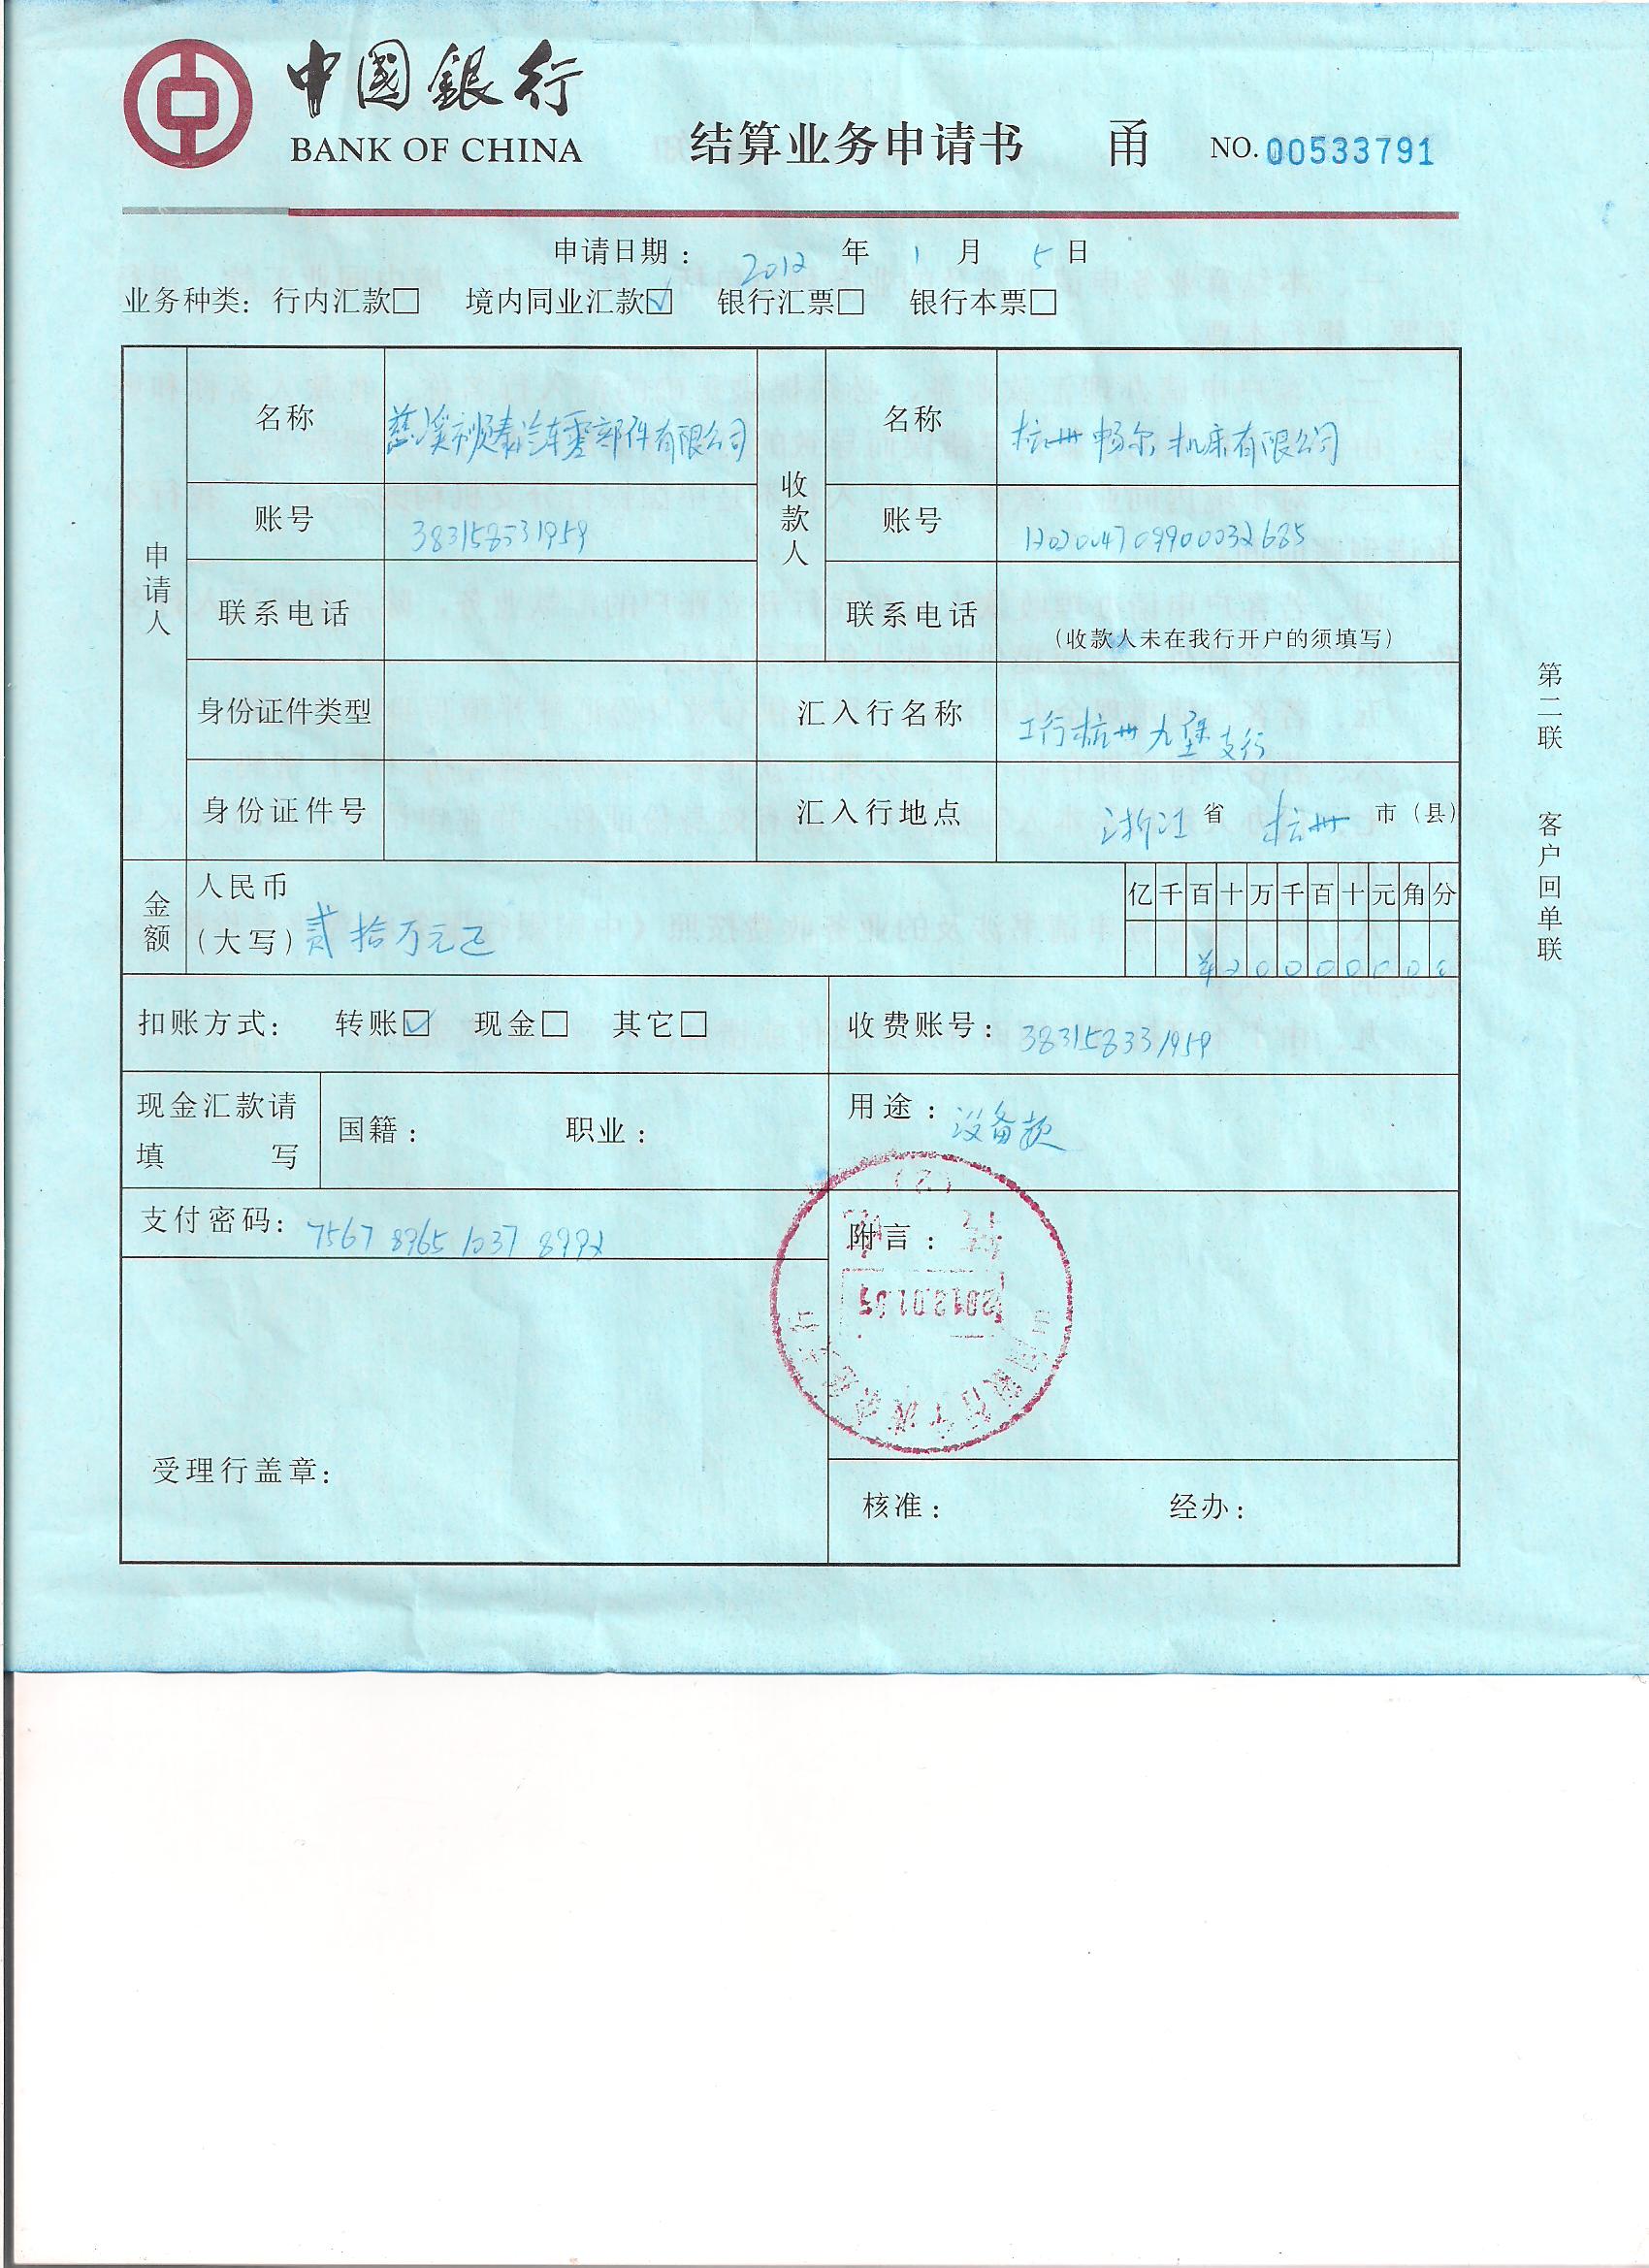 中國銀行
BANK OF CHINA
结算业务申请书 甬 NO. 00533791
申请日期： 2012 年 1 月 5 日
业务种类： 行内汇款□ 境内同业汇款☑ 银行汇票□ 银行本票□
申请人
名称 慈溪市顺泰汽车零部件有限公司
收款人
名称 杭州畅尔机床有限公司
账号 383158331959
账号 1202004709900032685
联系电话
联系电话 （收款人未在我行开户的须填写）
身份证件类型
汇入行名称 工行杭州九堡支行
身份证件号
汇入行地点 浙江 省 杭州 市（县）
金额
人民币
（大写） 贰拾万元正
亿 千 百 十 万 千 百 十 元 角 分
¥ 2 0 0 0 0 0 0 0
扣账方式： 转账☑ 现金□ 其它□
收费账号： 383158331959
现金汇款请
填写
国籍： 职业：
用途： 设备款
支付密码： 7567 8965 1037 8992
附言：
2012.01.05
受理行盖章：
核准： 经办：
第二联 客户回单联